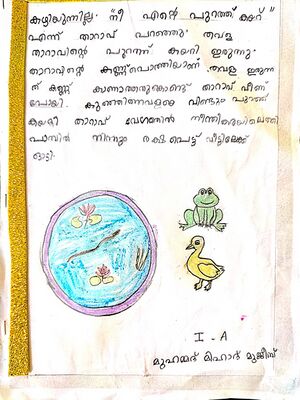 കഴിയുന്നില്ല. "നീ എന്റെ പുറത്ത് കയറ്"
എന്ന് താറാവ് പറഞ്ഞു. തവള
താറാവിന്റെ പുറത്ത് കയറി ഇരുന്നു.
താറാവിന്റെ കണ്ണ്പൊത്തിയാണ് തവള ഇരുന്ന
ത് കണ്ണ് കാണാത്തതുകൊണ്ട് താറാവ് വീണ്
പോയി. കുഞ്ഞിത്തവളയെ വീണ്ടും പുറത്ത്
കയറ്റി താറാവ് വേഗത്തിൽ നീന്തി
പാമ്പിൽ നിന്നും രക്ഷപെട്ട് വീട്ടിലേക്ക്
ഓടി.
I - A
മുഹമ്മദ് മിഹാദ് മുജീബ്